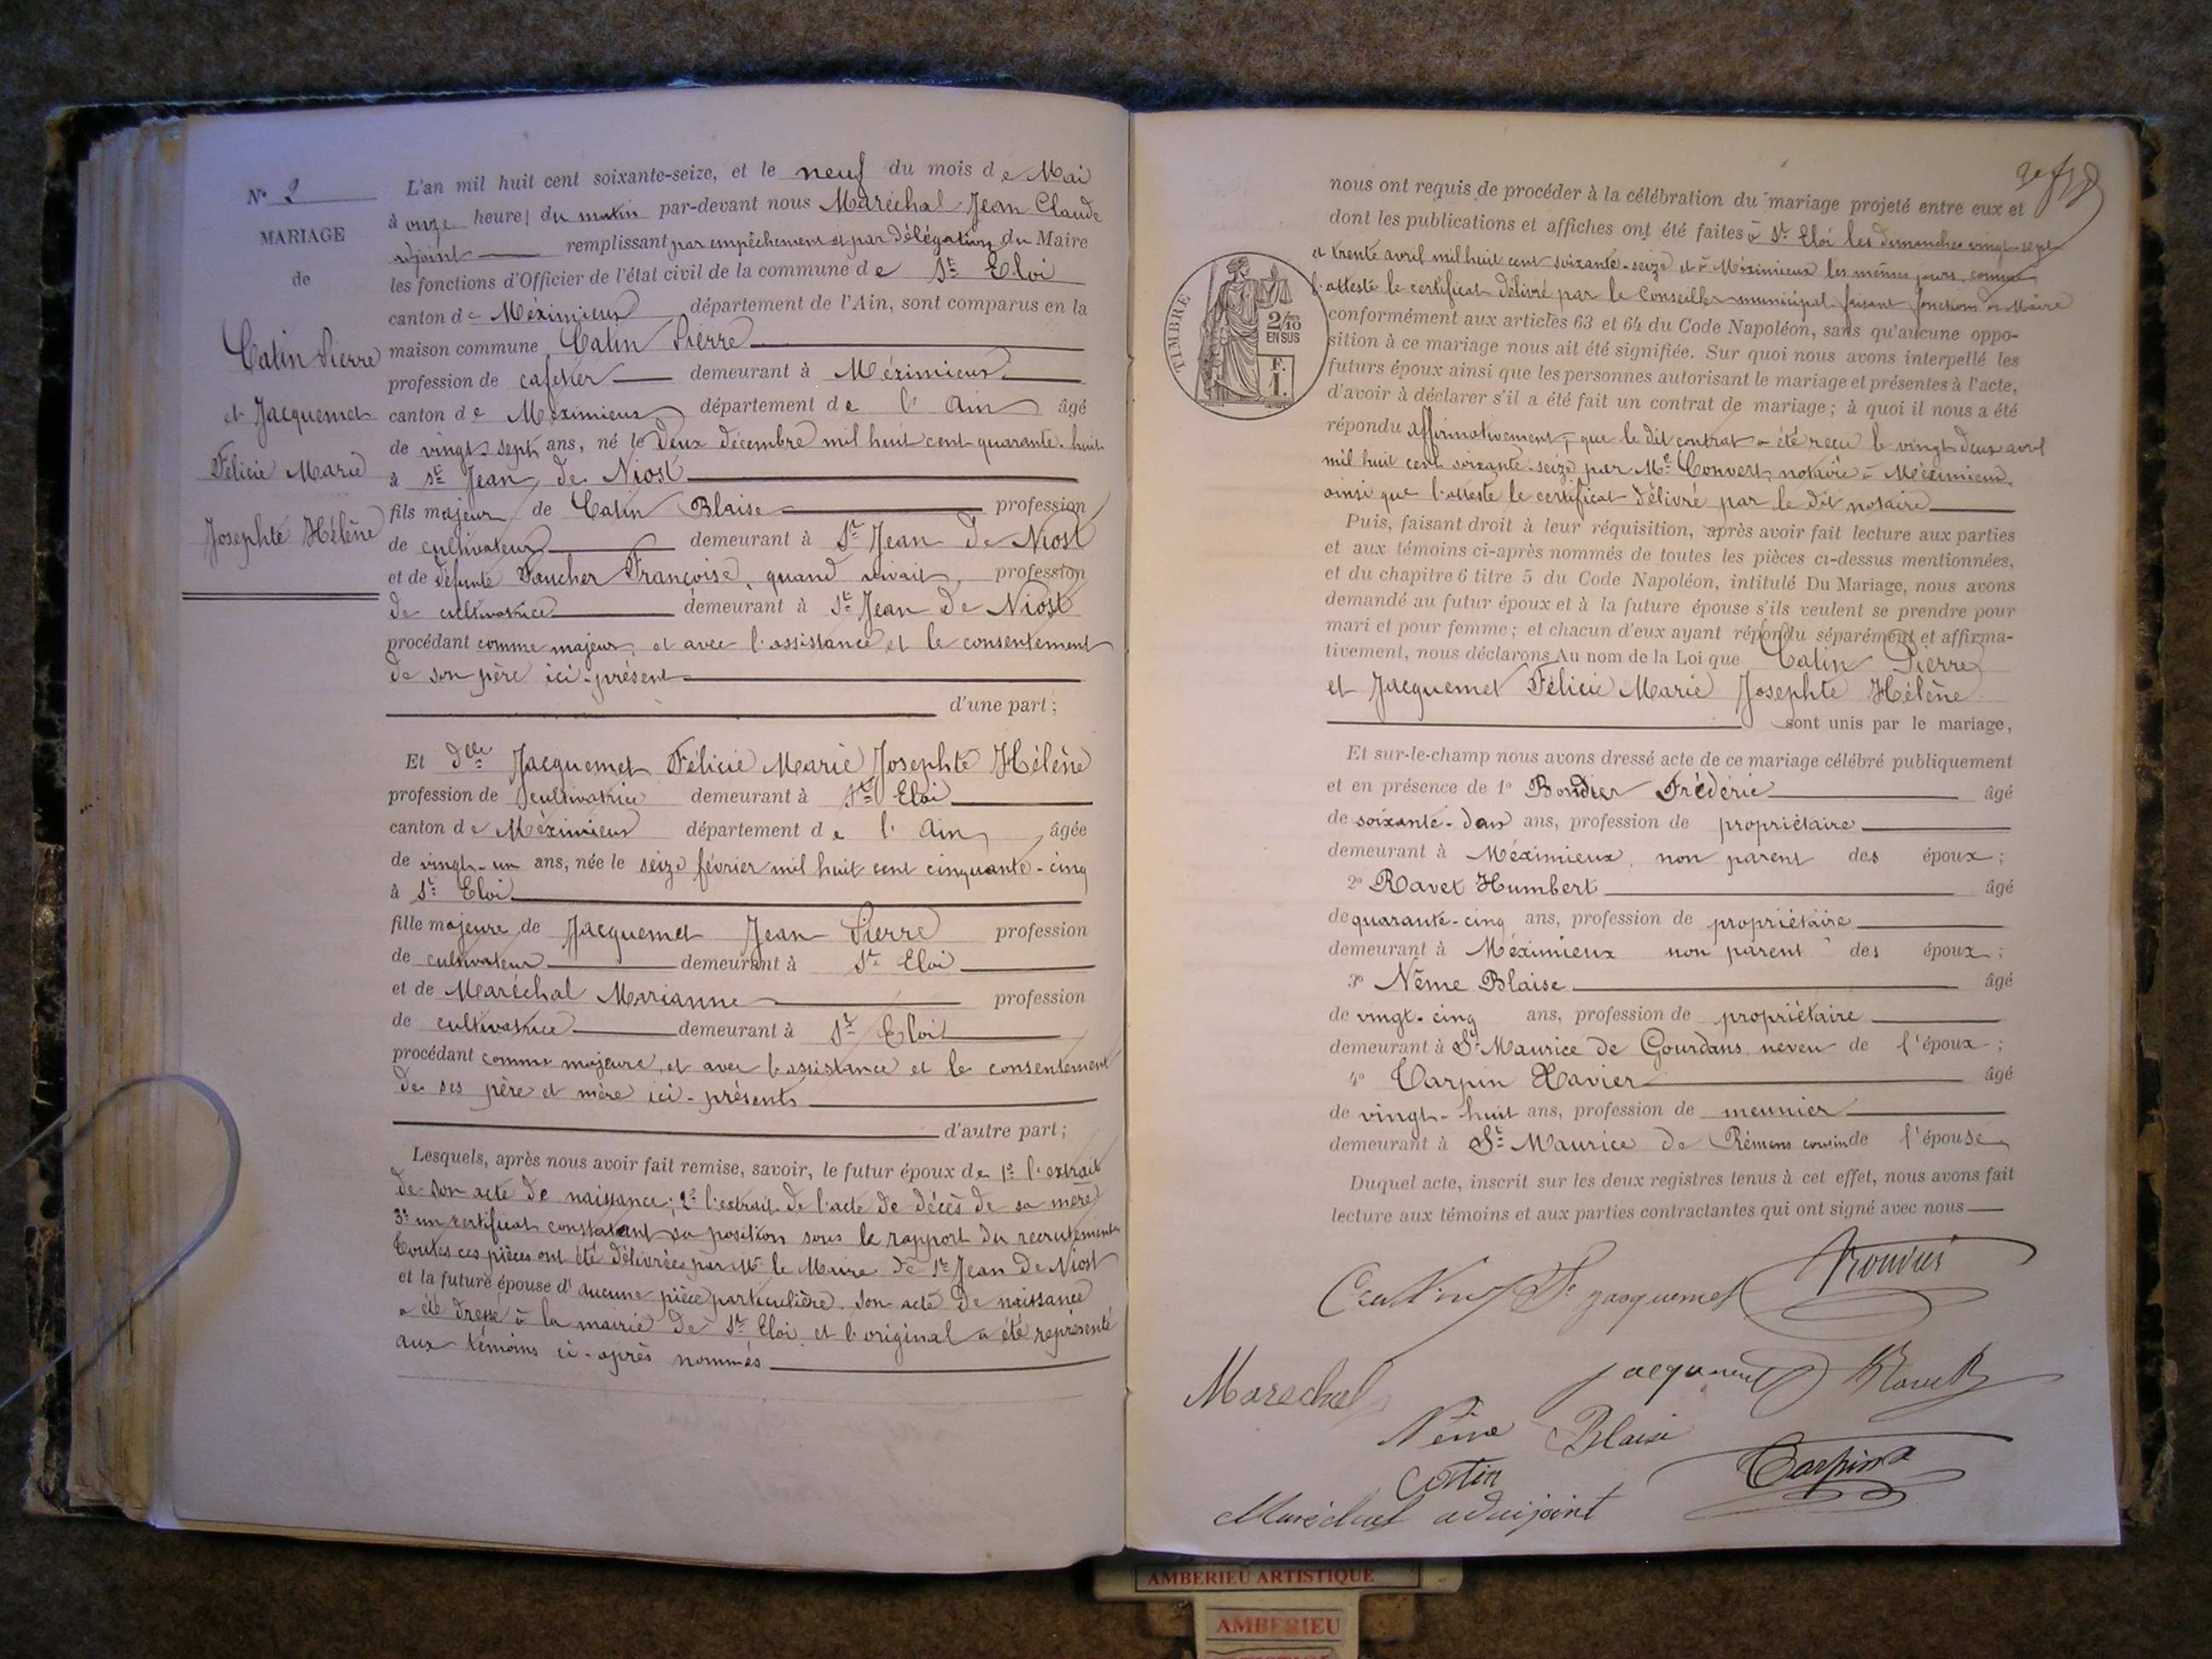 N° 2
MARIAGE
de
Catin Pierre
et Jacquemet
Félicie Marie
Josephte Hélène
L'an mil huit cent soixante-seize, et le neuf du mois de Mai
à onze heures du matin par-devant nous Maréchal Jean Claude
adjoint remplissant par empêchement et par délégation du Maire
les fonctions d'Officier de l'état civil de la commune de St Eloi
canton de Méximieux département de l'Ain, sont comparus en la
maison commune Catin Pierre
profession de cafetier demeurant à Méximieux
canton de Méximieux département de l'Ain âgé
de vingt sept ans, né le deux décembre mil huit cent quarante-huit
à St Jean de Niost
fils majeur de Catin Blaise profession
de cultivateur demeurant à St Jean de Niost
et de défunte Faucher Françoise, quand vivait, profession
de cultivatrice demeurant à St Jean de Niost
procédant comme majeur, et avec l'assistance et le consentement
de son père ici-présent
d'une part;
Et dlle Jacquemet Félicie Marie Josephte Hélène
profession de cultivatrice demeurant à St Eloi
canton de Méximieux département de l'Ain, âgée
de vingt-un ans, née le seize février mil huit cent cinquante-cinq
à St Eloi
fille majeure de Jacquemet Jean Pierre profession
de cultivateur demeurant à St Eloi
et de Maréchal Marianne profession
de cultivatrice demeurant à St Eloi
procédant comme majeure, et avec l'assistance et le consentement
de ses père et mère ici-présents
d'autre part;
Lesquels, après nous avoir fait remise, savoir, le futur époux de 1° l'extrait
de son acte de naissance; 2° l'extrait de l'acte de décès de sa mère
3° un certificat constatant sa position sous le rapport du recrutement
Toutes ces pièces ont été délivrées par Mr le Maire de St Jean de Niost
et la future épouse d'aucune pièce particulière. Son acte de naissance
a été dressé à la mairie de St Eloi et l'original a été représenté
aux témoins ci-après nommés
nous ont requis de procéder à la célébration du mariage projeté entre eux et
dont les publications et affiches ont été faites à St Eloi les dimanches vingt-sept
et trente avril mil huit cent soixante-seize et à Méximieux les mêmes jours, comme
l'atteste le certificat délivré par le Conseiller municipal faisant fonctions de Maire
TIMBRE
2/10
EN SUS
F.
1.
conformément aux articles 63 et 64 du Code Napoléon, sans qu'aucune oppo-
sition à ce mariage nous ait été signifiée. Sur quoi nous avons interpellé les
futurs époux ainsi que les personnes autorisant le mariage et présentes à l'acte,
d'avoir à déclarer s'il a été fait un contrat de mariage; à quoi il nous a été
répondu affirmativement, que le dit contrat a été reçu le vingt deux avril
mil huit cent soixante-seize par Me Convert, notaire à Méximieux,
ainsi que l'atteste le certificat délivré par le dit notaire
Puis, faisant droit à leur réquisition, après avoir fait lecture aux parties
et aux témoins ci-après nommés de toutes les pièces ci-dessus mentionnées,
et du chapitre 6 titre 5 du Code Napoléon, intitulé Du Mariage, nous avons
demandé au futur époux et à la future épouse s'ils veulent se prendre pour
mari et pour femme; et chacun d'eux ayant répondu séparément et affirma-
tivement, nous déclarons Au nom de la Loi que Catin Pierre
et Jacquemet Félicie Marie Josephte Hélène
sont unis par le mariage,
Et sur-le-champ nous avons dressé acte de ce mariage célébré publiquement
et en présence de 1° Frédéric âgé
de soixante-deux ans, profession de propriétaire
demeurant à Méximieux, non parent des époux;
2° Ravet Humbert âgé
de quarante-cinq ans, profession de propriétaire
demeurant à Méximieux non parent des époux;
3° Nême Blaise âgé
de vingt-cinq ans, profession de propriétaire
demeurant à St Maurice de Gourdans neveu de l'époux;
4° Carpin Xavier âgé
de vingt-huit ans, profession de meunier
demeurant à St Maurice de Rémens cousin de l'épouse
Duquel acte, inscrit sur les deux registres tenus à cet effet, nous avons fait
lecture aux témoins et aux parties contractantes qui ont signé avec nous
Catin P. jacquemet
Marechal jacquemet Ravet
Nême Blaise
Catin Carpin X
Maréchal adjoint
AMBERIEU ARTISTIQUE
AMBERIEU